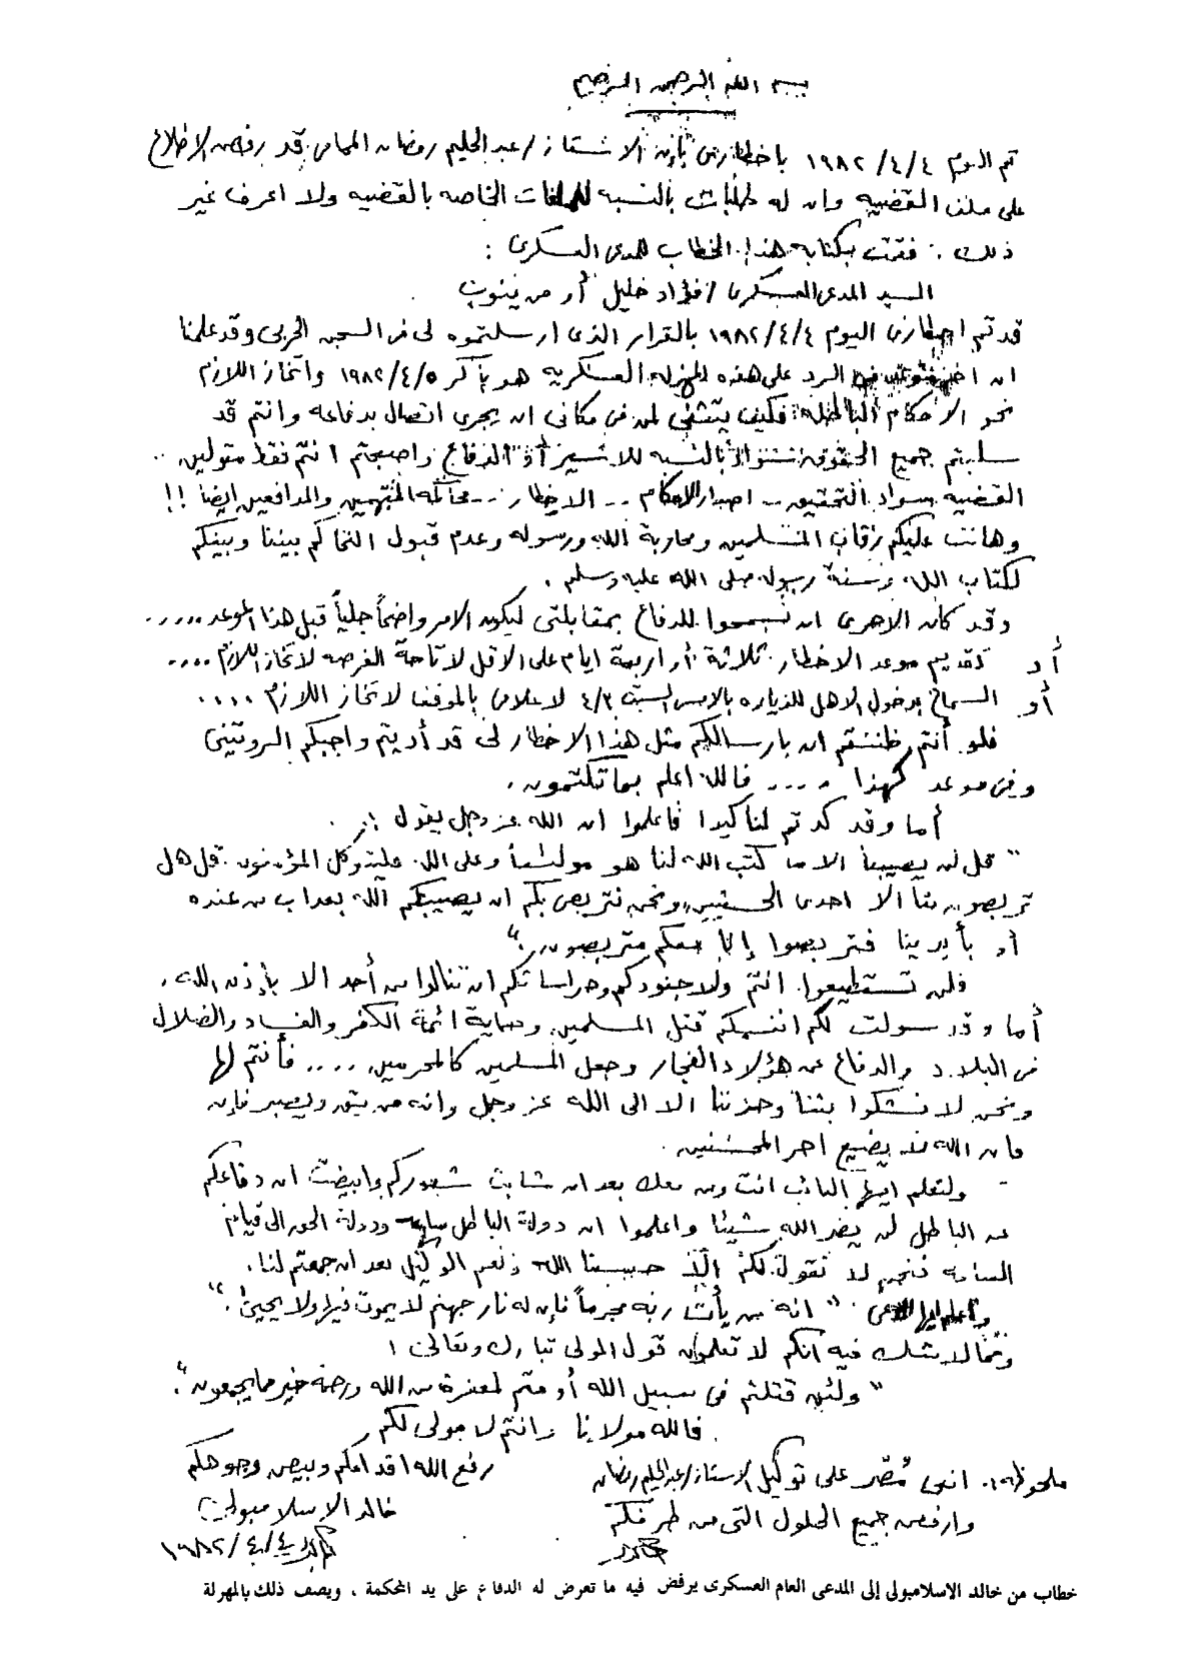 بسم الله الرحمن الرحيم
تم اليوم ١٩٨٢/٤/٤ باخطارى بأن الاستاذ/ عبد الحليم رمضان المحامى قد رفض الاطلاع
على ملف القضيه وان له طلبات بالنسبه للملفات الخاصه بالقضيه ولا اعرف غير
ذلك . فقمت بكتابه هذا الخطاب للمدعى العسكرى :
السيد المدعى العسكرى / فؤاد خليل أو من ينوب
قد تم اخطارى اليوم ١٩٨٢/٤/٤ بالقرار الذى ارسلتموه لى فى السجن الحربى وقد علمنا
ان اخر الرد على هذه المهزله العسكريه هو باكر ١٩٨٢/٤/٥ واتخاذ اللازم
نحو الاحكام الباطله فكيف يتثنى لمن فى مكانى ان يجرى اتصال بدفاعه وانتم قد
سلبتم جميع الحقوق سواء بالنسبه للاسير أو الدفاع واصبحتم انتم فقط متولين ..
القضيه سواء التحقيق .. اصدار الاحكام .. الاخطار ... محاكمه المتهمين والمدافعين ايضا !!
وهانت عليكم رقاب المسلمين ومحاربة الله ورسوله وعدم قبول التحاكم بيننا وبينكم
لكتاب الله وسنة رسوله صلى الله عليه وسلم .
وقد كان الاحرى ان تسمحوا للدفاع بمقابلتى ليكون الامر واضحاً جلياً قبل هذا الموعد .....
أو تقديم موعد الاخطار ثلاثة أو اربعة ايام على الاقل لاتاحة الفرصه لاتخاذ اللازم ....
أو السماح بدخول الاهل للزياره بالامس السبت ٤/٣ لاعلامى بالموقف لاتخاذ اللازم ....
فلو أنتم ظننتم ان بارسالكم مثل هذا الاخطار لى قد أديتم واجبكم الروتينى
وفى موعد كهذا .... فالله اعلم بما تكتمون .
أما وقد كدتم لنا كيدا فاعلموا ان الله عز وجل يقول :
" قل لن يصيبنا الا ما كتب الله لنا هو مولانا وعلى الله فليتوكل المؤمنون . قل هل
تربصون بنا الا احدى الحسنيين ونحن نتربص بكم ان يصيبكم الله بعذاب من عنده
أو بأيدينا فتربصوا إنا معكم متربصون "
فلن تستطيعوا انتم ولا جنودكم وحراساتكم ان تنالوا من أحد الا بإذن الله .
أما وقد سولت لكم انفسكم قتل المسلمين وحماية ائمة الكفر والفساد والضلال
فى البلاد والدفاع عن هؤلاء الفجار وجعل المسلمين كالمجرمين .... فأنتم لها
ونحن لا نشكوا بثنا وحزننا الا الى الله عز وجل وانه من يتق ويصبر فإن
فان الله لا يضيع اجر المحسنين .
- ولتعلم ايها النائب انت ومن معك بعد ان شابت شعوركم وابيضت ان دفاعكم
عن الباطل لن يضر الله شيئا واعلموا ان دولة الباطل ساعه ودولة الحق الى قيام
الساعه فنحن لا نقول لكم إلا حسبنا الله ونعم الوكيل بعد ان جمعتم لنا .
واعلم ايها المدعى " انه من يأت ربه مجرماً فإن له نار جهنم لا يموت فيها ولا يحيى ".
ومما لا شك فيه انكم لا تعلمون قول المولى تبارك وتعالى :
" ولئن قتلتم فى سبيل الله أو متم لمغفرة من الله ورحمة خير مما يجمعون ".
فالله مولانا وانتم لا مولى لكم
رفع الله اقدامكم وبيض وجوهكم
خالد الاسلامبولى
١٩٨٢/٤/٤
ملحوظه : اننى مُصر على توكيل الاستاذ/ عبد الحليم رمضان
وارفض جميع الحلول التى من طرفكم
خالد
خطاب من خالد الاسلامبولى إلى المدعى العام العسكرى يرفض فيه ما تعرض له الدفاع على يد المحكمة ، ويصف ذلك بالمهزلة